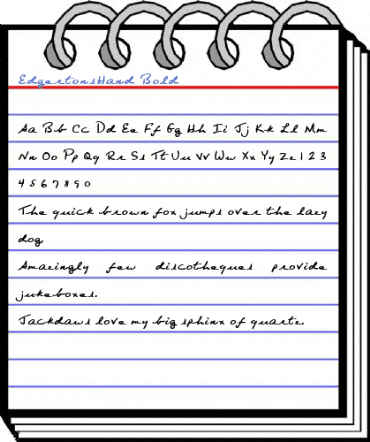 EdgertonsHand Bold
Aa Bb Cc Dd Ee Ff Gg Hh Ii Jj Kk Ll Mm
Nn Oo Pp Qq Rr Ss Tt Uu Vv Ww Xx Yy Zz 1 2 3
4 5 6 7 8 9 0
The quick brown fox jumps over the lazy
dog
Amazingly few discotheques provide
jukeboxes.
Jackdaws love my big sphinx of quartz.